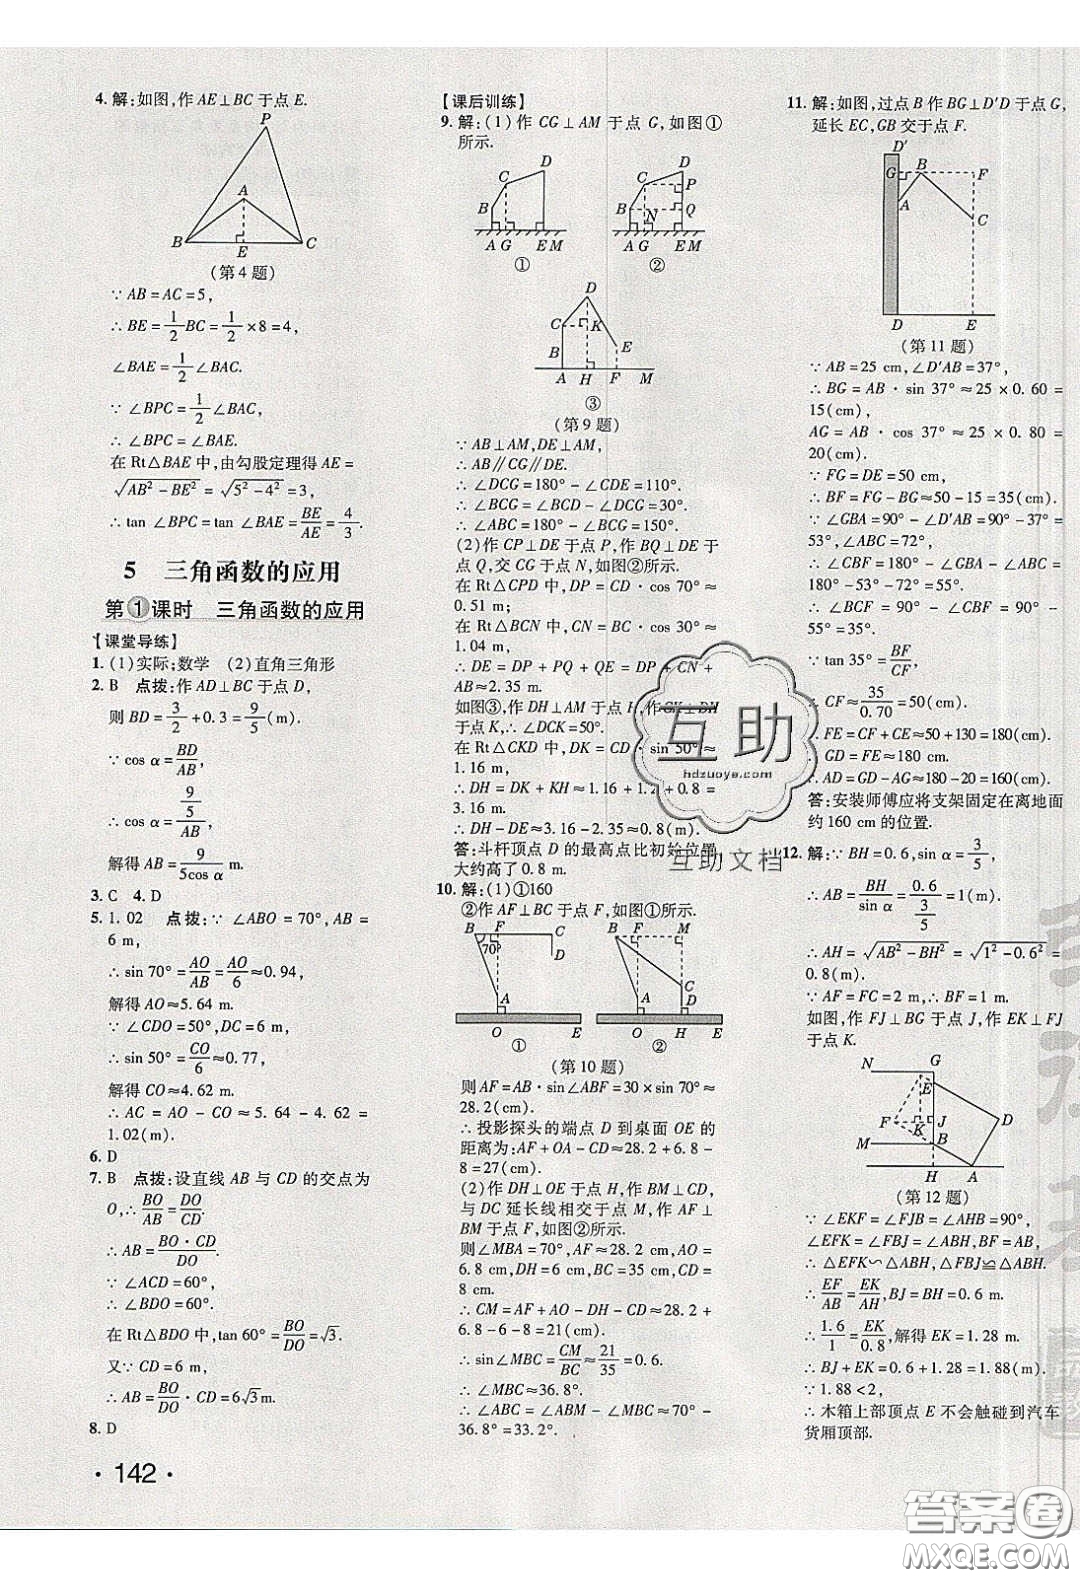 4. 解:如图,作 AE⊥BC 于点 E.
P
A
B
E
C
(第 4 题)
∵ AB=AC=5,
∴ BE=1/2 BC=1/2×8=4,
∠BAE=1/2∠BAC.
∵ ∠BPC=1/2∠BAC,
∴ ∠BPC=∠BAE.
在 Rt△BAE 中,由勾股定理得 AE=
√(AB²-BE²)=√(5²-4²)=3,
∴ tan ∠BPC=tan ∠BAE=BE/AE=4/3.
5 三角函数的应用
第①课时 三角函数的应用
【课堂导练】
1. (1)实际;数学 (2)直角三角形
2. B 点拨:作 AD⊥BC 于点 D,
则 BD=3/2+0.3=9/5(m).
∵ cos α=BD/AB,
∴ cos α=(9/5)/AB,
解得 AB=9/(5cos α) m.
3. C 4. D
5. 1.02 点拨:∵ ∠ABO=70°,AB=
6 m,
∴ sin 70°=AO/AB=AO/6≈0.94,
解得 AO≈5.64 m.
∵ ∠CDO=50°,DC=6 m,
∴ sin 50°=CO/6≈0.77,
解得 CO≈4.62 m.
∴ AC=AO-CO≈5.64-4.62=
1.02(m).
6. D
7. B 点拨:设直线 AB 与 CD 的交点为
O,∴ BO/AB=DO/CD.
∴ AB=BO·CD/DO.
∵ ∠ACD=60°,
∴ ∠BDO=60°.
在 Rt△BDO 中,tan 60°=BO/DO=√3.
又∵ CD=6 m,
∴ AB=BO/DO·CD=6√3 m.
8. D
·142·
【课后训练】
9. 解:(1)作 CG⊥AM 于点 G,如图①
所示.
D
C
B
A G E M
①
D
C P
B N Q
A G E M
②
D
C K
B E
A H F M
③
(第 9 题)
∵ AB⊥AM,DE⊥AM,
∴ AB∥CG∥DE.
∴ ∠DCG=180°-∠CDE=110°.
∴ ∠BCG=∠BCD-∠DCG=30°.
∴ ∠ABC=180°-∠BCG=150°.
(2)作 CP⊥DE 于点 P,作 BQ⊥DE 于
点 Q,交 CG 于点 N,如图②所示.
在 Rt△CPD 中,DP=CD·cos 70°≈
0.51 m.
在 Rt△BCN 中,CN=BC·cos 30°≈
1.04 m,
∴ DE=DP+PQ+QE=DP+CN+
AB≈2.35 m.
如图③,作 DH⊥AM 于点 H,作 CK⊥DH
于点 K,∴ ∠DCK=50°.
在 Rt△CKD 中,DK=CD·sin 50°≈
1.16 m,
∴ DH=DK+KH≈1.16+1.2+0.8=
3.16 m.
∴ DH-DE≈3.16-2.35≈0.8(m).
答:斗杆顶点 D 的最高点比初始位置
大约高了 0.8 m.
10. 解:(1)①160
②作 AF⊥BC 于点 F,如图①所示.
B F C
70° D
A
O E
①
B F M
C
A D
O H E
②
(第 10 题)
则 AF=AB·sin∠ABF=30×sin 70°≈
28.2(cm).
∴ 投影探头的端点 D 到桌面 OE 的
距离为:AF+OA-CD≈28.2+6.8-
8=27(cm).
(2)作 DH⊥OE 于点 H,作 BM⊥CD,
与 DC 延长线相交于点 M,作 AF⊥
BM 于点 F,如图②所示.
则∠MBA=70°,AF≈28.2 cm,AO=
6.8 cm,DH=6 cm,BC=35 cm,CD=
8 cm,
∴ CM=AF+AO-DH-CD≈28.2+
6.8-6-8=21(cm).
∴ sin∠MBC=CM/BC≈21/35=0.6.
∴ ∠MBC≈36.8°.
∴ ∠ABC=∠ABM-∠MBC≈70°-
36.8°=33.2°.
11. 解:如图,过点 B 作 BG⊥D′D 于点 G,
延长 EC,GB 交于点 F.
D′
G B F
A
C
D E
(第 11 题)
∵ AB=25 cm,∠D′AB=37°,
∴ BG=AB·sin 37°≈25×0.60=
15(cm),
AG=AB·cos 37°≈25×0.80=
20(cm).
∵ FG=DE=50 cm,
∴ BF=FG-BG≈50-15=35(cm).
∵ ∠GBA=90°-∠D′AB=90°-37°=
53°,∠ABC=72°,
∴ ∠CBF=180°-∠GBA-∠ABC=
180°-53°-72°=55°.
∴ ∠BCF=90°-55°=35°.
∵ tan 35°=BF/CF,
∴ CF≈35/0.70=50(cm).
∴ FE=CF+CE≈50+130=180(cm).
∴ GD=FE≈180 cm.
∴ AD=GD-AG≈180-20=160(cm).
答:安装师傅应将支架固定在离地面
约 160 cm 的位置.
12. 解:∵ BH=0.6,sin α=3/5,
∴ AB=BH/sin α=0.6/(3/5)=1(m).
∴ AH=√(AB²-BH²)=√(1²-0.6²)=
0.8(m).
∵ AF=FC=2 m,∴ BF=1 m.
如图,作 FJ⊥BG 于点 J,作 EK⊥FJ
于点 K.
N G
E
F K J D
M B
H A
(第 12 题)
∵ ∠EKF=∠FJB=∠AHB=90°,
∠EFK=∠FBJ=∠ABH,BF=AB,
∴ △EFK∽△ABH,△FBJ≌△ABH.
∴ EF/AB=EK/AH,BJ=BH=0.6 m.
∴ 1.6/1=EK/0.8,解得 EK=1.28 m.
∴ BJ+EK=0.6+1.28=1.88(m).
∵ 1.88<2,
∴ 木箱上部顶点 E 不会触碰到汽车
货厢顶部.
互助
hdzuoye.com
互助文档
答案圈
MXQE.COM